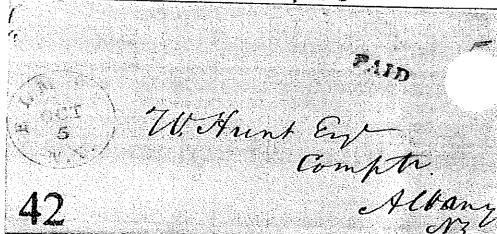 PAID
OCT
5
W Hunt Esqr
Comptr.
Albany
NY
42